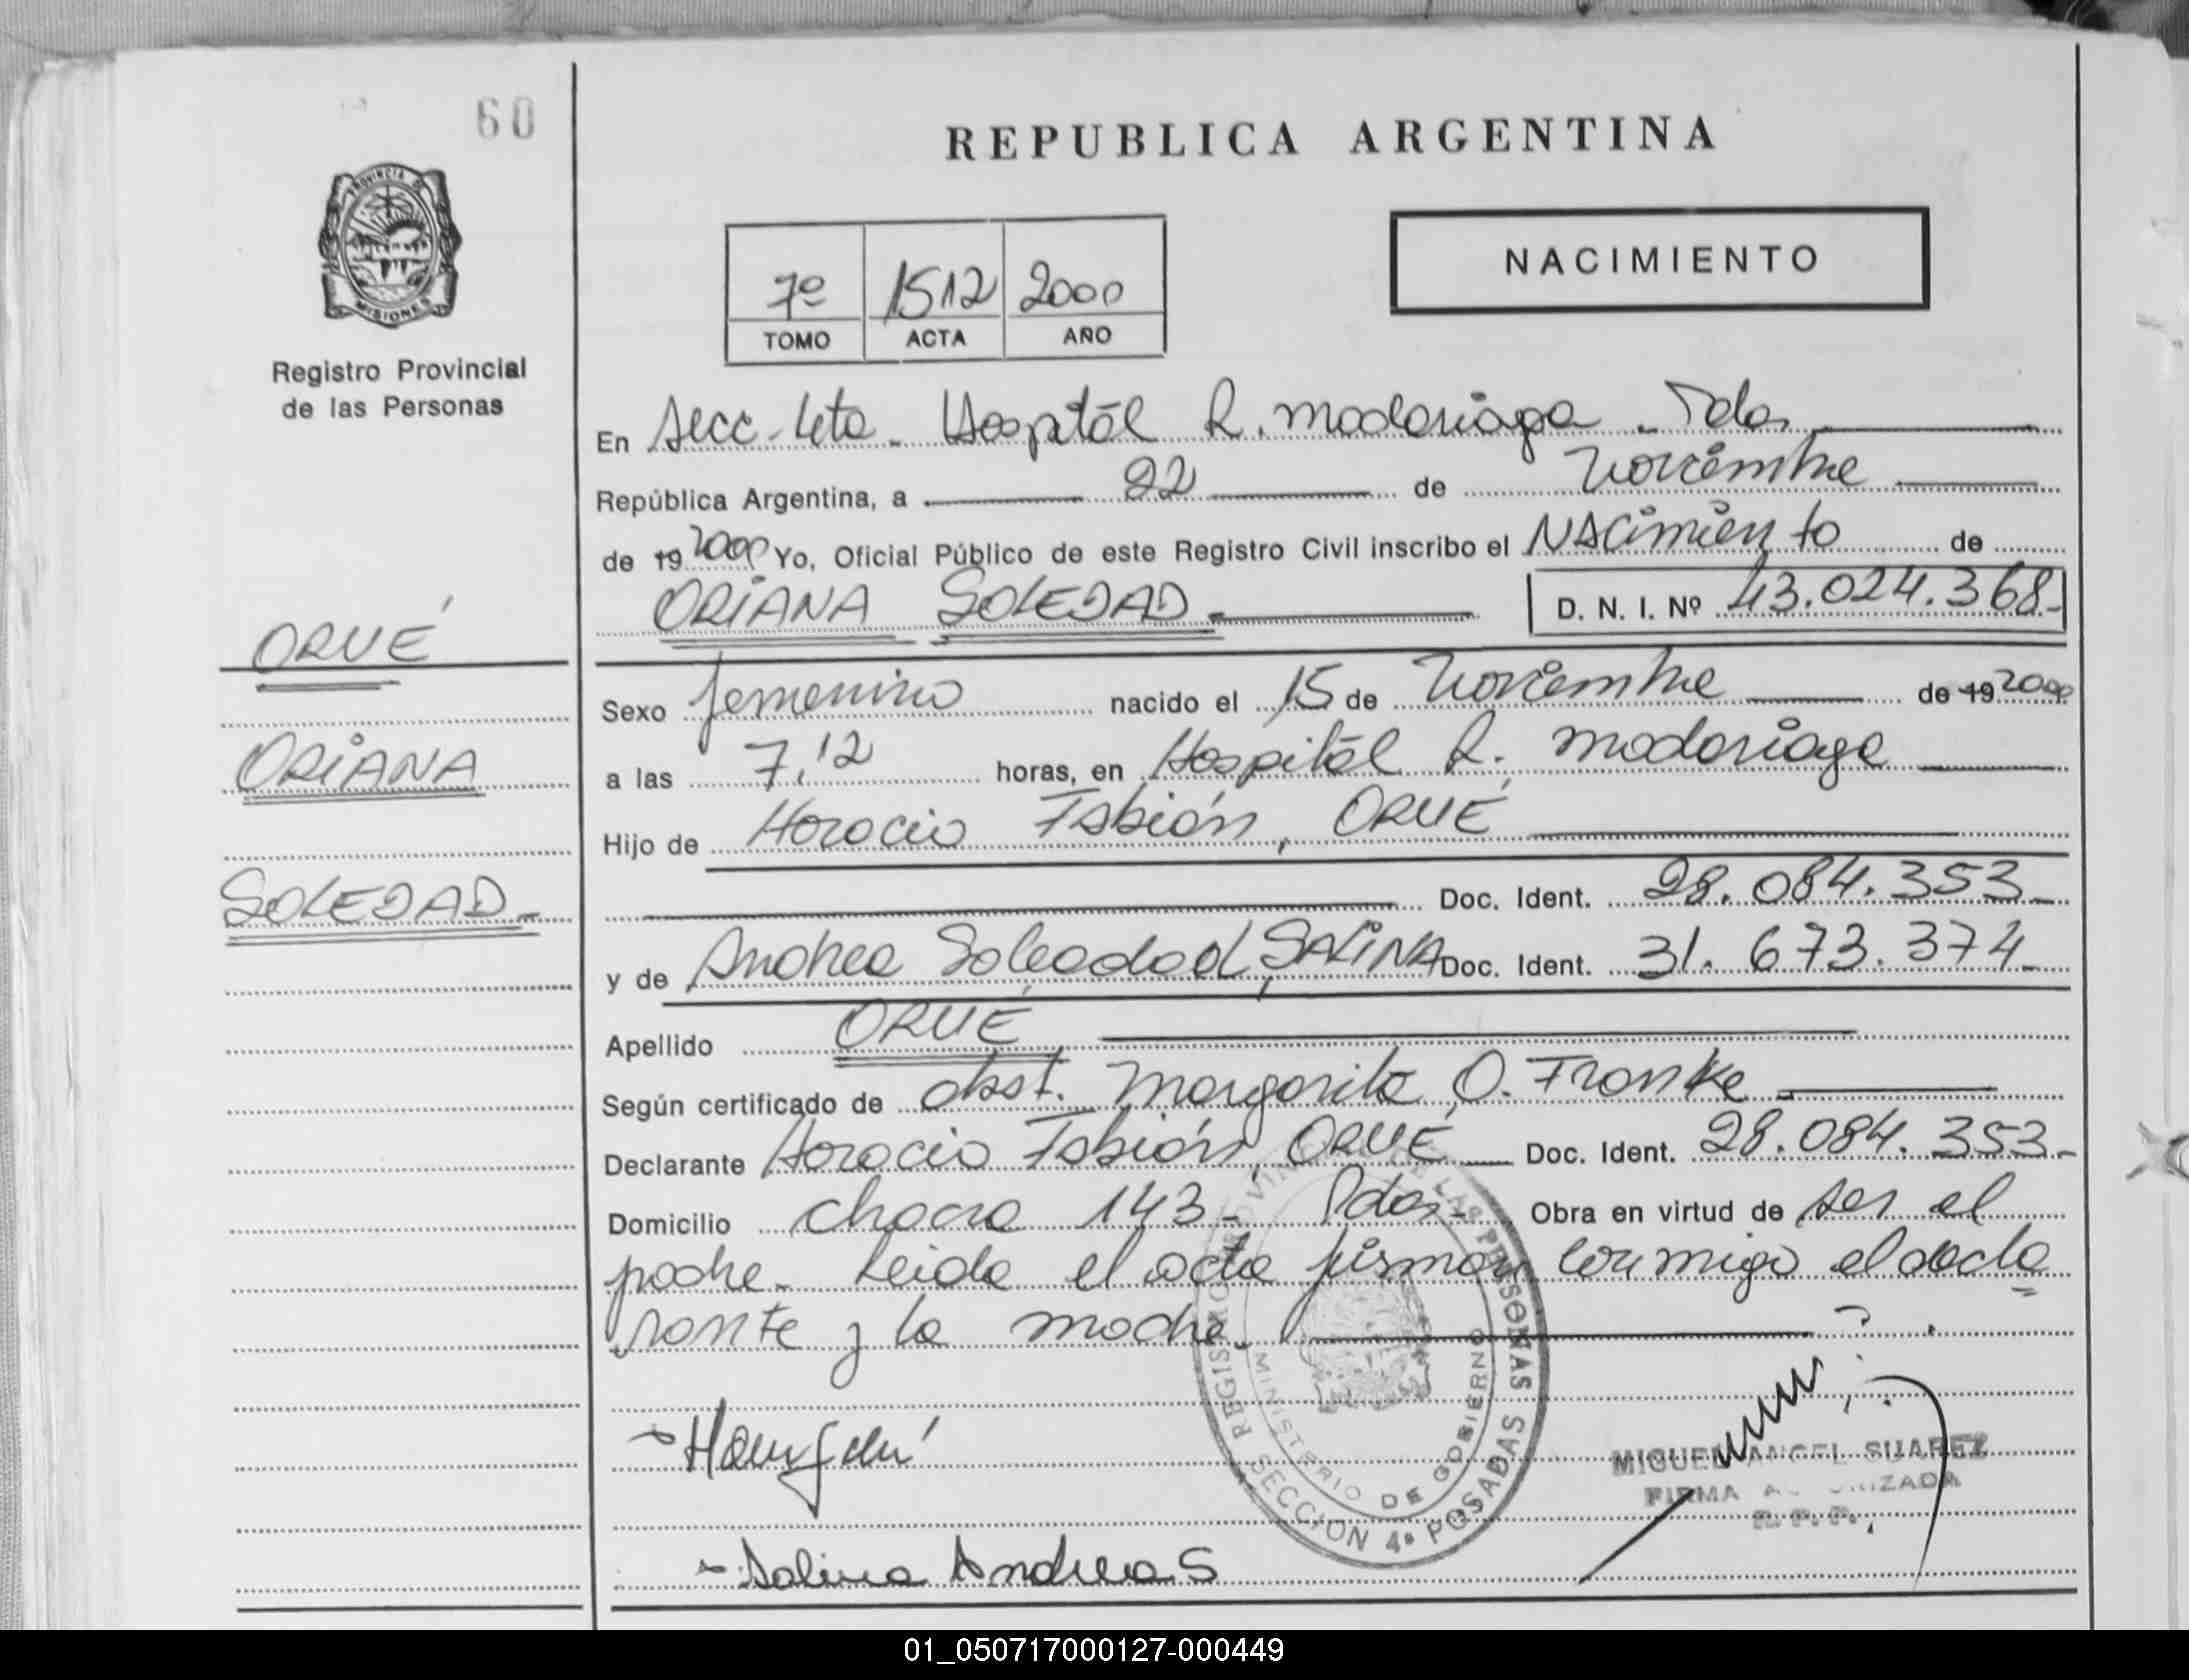 60
REPUBLICA ARGENTINA
PROVINCIA DE
MISIONES
Registro Provincial
de las Personas
7º 1512 2000
TOMO ACTA AÑO
NACIMIENTO
En Secc. 4ta. Hospitál R. Madariaga - Pdas.
República Argentina, a 22 de Noviembre
de 19 2000 Yo, Oficial Público de este Registro Civil inscribo el NACimiento de
ORIANA SOLEDAD.- D. N. I. Nº 43.024.368-
ORUÉ
ORIANA
SOLEDAD-
Sexo femenino nacido el 15 de Noviembre de 19 2000
a las 7,12 horas, en Hospitál R. Madariaga
Hijo de Horacio Fabián, ORUÉ
Doc. Ident. 28.084.353-
y de Andrea Soledad, SALINA Doc. Ident. 31.673.374-
Apellido ORUÉ
Según certificado de obst. Margarita O. Franke -
Declarante Horacio Fabián, ORUÉ Doc. Ident. 28.084.353-
Domicilio chacra 143- Pdas- Obra en virtud de ser el
padre- Leida el acta firman conmigo el decla
rante y la madre.
REGISTRO PROVINCIAL DE LAS PERSONAS
MINISTERIO DE GOBIERNO
SECCION 4ª POSADAS
MIGUEL ANGEL SUAREZ
FIRMA AUTORIZADA
R. P. P.
- Salina Andrea S
01_050717000127-000449